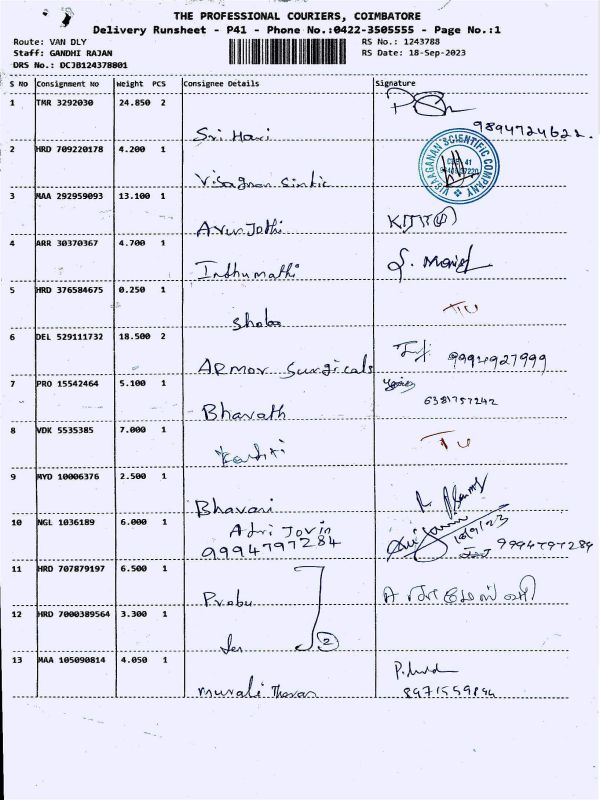 THE PROFESSIONAL COURIERS, COIMBATORE
Delivery Runsheet - P41 - Phone No.:0422-3505555 - Page No.:1
Route: VAN DLY RS No.: 1243788
Staff: GANDHI RAJAN RS Date: 18-Sep-2023
DRS No.: DCJB124378801
S No Consignment No Weight PCS Consignee Details Signature
1 TMR 3292030 24.850 2
Sri Hari 9894724622.
2 HRD 709220178 4.200 1
VISAGANAN SCIENTIFIC COMPANY
3 MAA 292959093 13.100 1
Arun Jothi
4 ARR 30370367 4.700 1
Indhumathi
5 HRD 376584675 0.250 1
Shoba
6 DEL 529111732 18.500 2
Armor Surgicals 9994927999
7 PRO 15542464 5.100 1
Bharath 6381757242
8 VDK 5535385 7.000 1
9 MYD 10006376 2.500 1
Bhavani
10 NGL 1036189 6.000 1 Adri Jovin 18/9/23
9994797284 9994797284
11 HRD 707879197 6.500 1
Prabu
12 HRD 7000389564 3.300 1
2
13 MAA 105090814 4.050 1
Murali